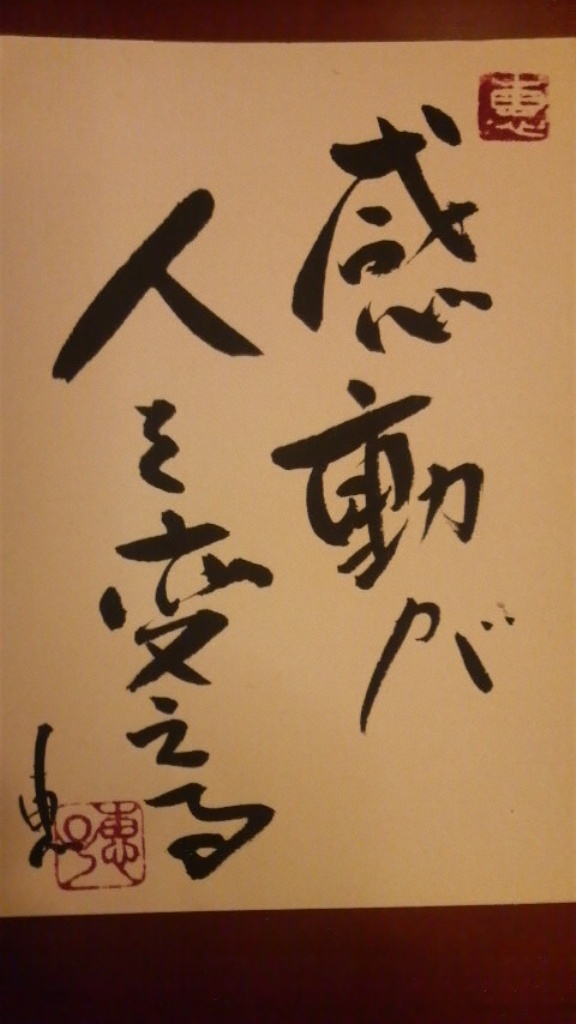 恵
感動が
人を変える
恵